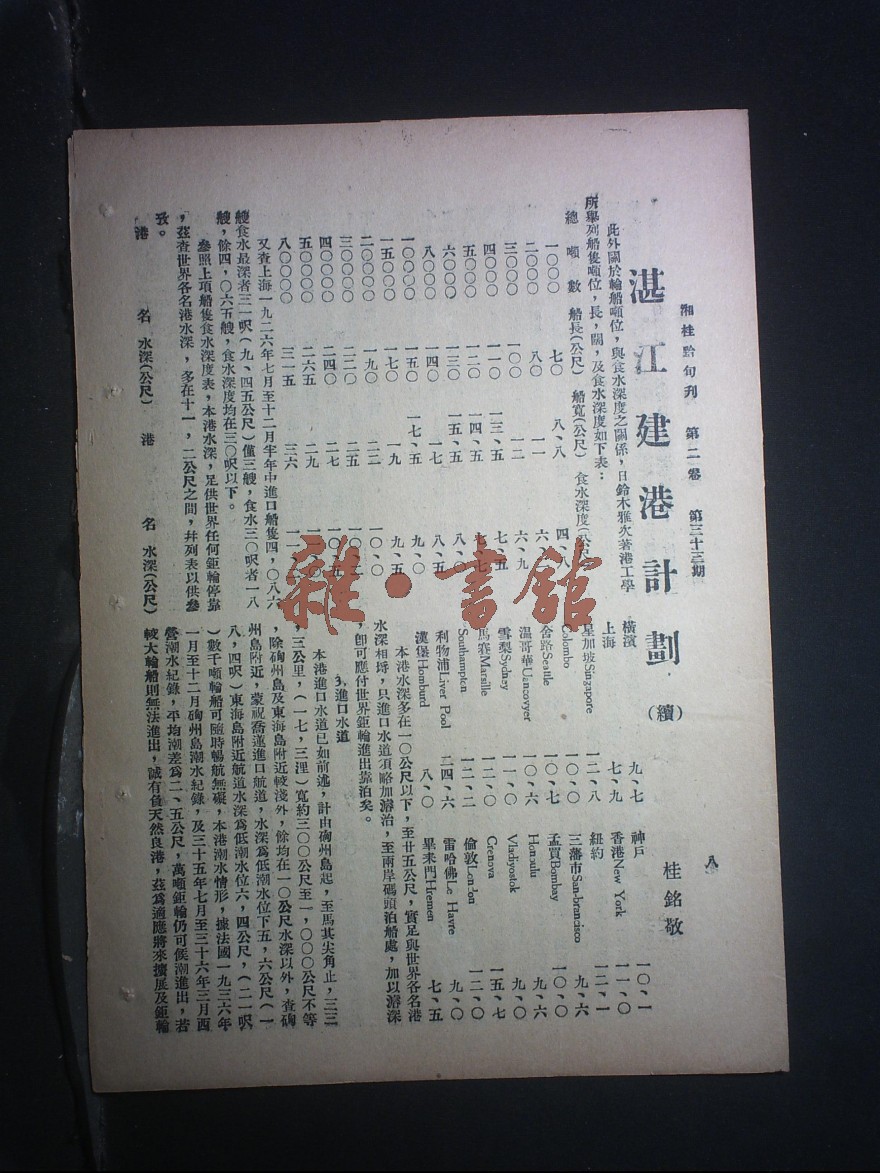 湘桂黔旬刊 第二卷 第三十三期 八
湛江建港計劃(續) 桂銘敬
此外關於輪船噸位,與食水深度之關係,日鈴木雅次著港工學
所舉列船隻噸位,長,闊,及食水深度如下表:
總噸數 船長(公尺) 船寬(公尺) 食水深度(公尺)
一〇〇〇 七〇 八、八 四、八
二〇〇〇 八〇 一一 六、
三〇〇〇 一〇〇 一二 六、九
四〇〇〇 一一〇 一三、五 七、五
五〇〇〇 一二〇 一四、五 七、七
六〇〇〇 一三〇 一五、五 八、〇
八〇〇〇 一四〇 一七 八、五
一〇〇〇〇 一五〇 一七、五 九、〇
一五〇〇〇 一七〇 一九 九、五
二〇〇〇〇 一九〇 二二 一〇、〇
三〇〇〇〇 二二〇 二五 一〇、
四〇〇〇〇 二四〇 二七 一〇、五
五〇〇〇〇 二六五 二九 一一、〇
八〇〇〇〇 三一五 三六 一一、
又查上海一九二六年七月至十二月半年中進口船隻四,〇八六
艘食水最深者三一呎(九、四五公尺)僅三艘,食水三〇呎者一八
艘,餘四,〇六五艘,食水深度均在三〇呎以下。
參照上項船隻食水深度表,本港水深,足供世界任何鉅輪停靠
,茲查世界各名港水深,多在十一,二公尺之間,幷列表以供參
攷。
港名 水深(公尺) 港名 水深(公尺)
橫濱 九、七 神戶 一〇、一
上海 七、九 香港New York 一一、〇
星加坡Singapore 一二、八 紐約 一二、一
Colombo 一〇、〇 三藩市San-brancisco 九、六
舍路Seattle 一〇、七 孟買Bombay 一〇、〇
温哥華Uancovyer 一〇、六 Honoulu 九、六
雪梨Sydney 一一、〇 Vladiyostok 九、〇
馬賽Marsille 一二、〇 Crenova 一五、七
Southampton 一二、二 倫敦Lon‘on 一二、〇
利物浦Liver Pool 二四、六 雷哈佛Le Havre 九、〇
漢堡Homburd 八、〇 畢來門Hremen 七、五
本港水深多在一〇公尺以下,至廿五公尺,實足與世界各名港
水深相埒,只進口水道須略加濬治,至兩岸碼頭泊船處,加以濬深
,卽可應付世界鉅輪進出靠泊矣。
3.進口水道
本港進口水道已如前述,計由硇州島起,至馬其尖角止,三三
,三公里,(一七,三浬)寬約三〇〇公尺至一,〇〇〇公尺不等
,除硇州島及東海島附近較淺外,餘均在一〇公尺水深以外,查硇
州島附近,蒙祝喬蓮進口航道,水深爲低潮水位下五,六公尺(一
八,四呎)東海島附近航道水深爲低潮水位六,四公尺,(二一呎
)數千噸輪船可隨時暢航無礙,本港潮水情形,據法國一九三六年
一月至十二月硇州島潮水紀錄,及三十五年七月至三十六年三月西
營潮水紀錄,平均潮差爲二、五公尺,萬噸鉅輪仍可候潮進出,若
較大輪船則無法進出,誠有負天然良港,茲爲適應將來擴展及鉅輪
雜·書館